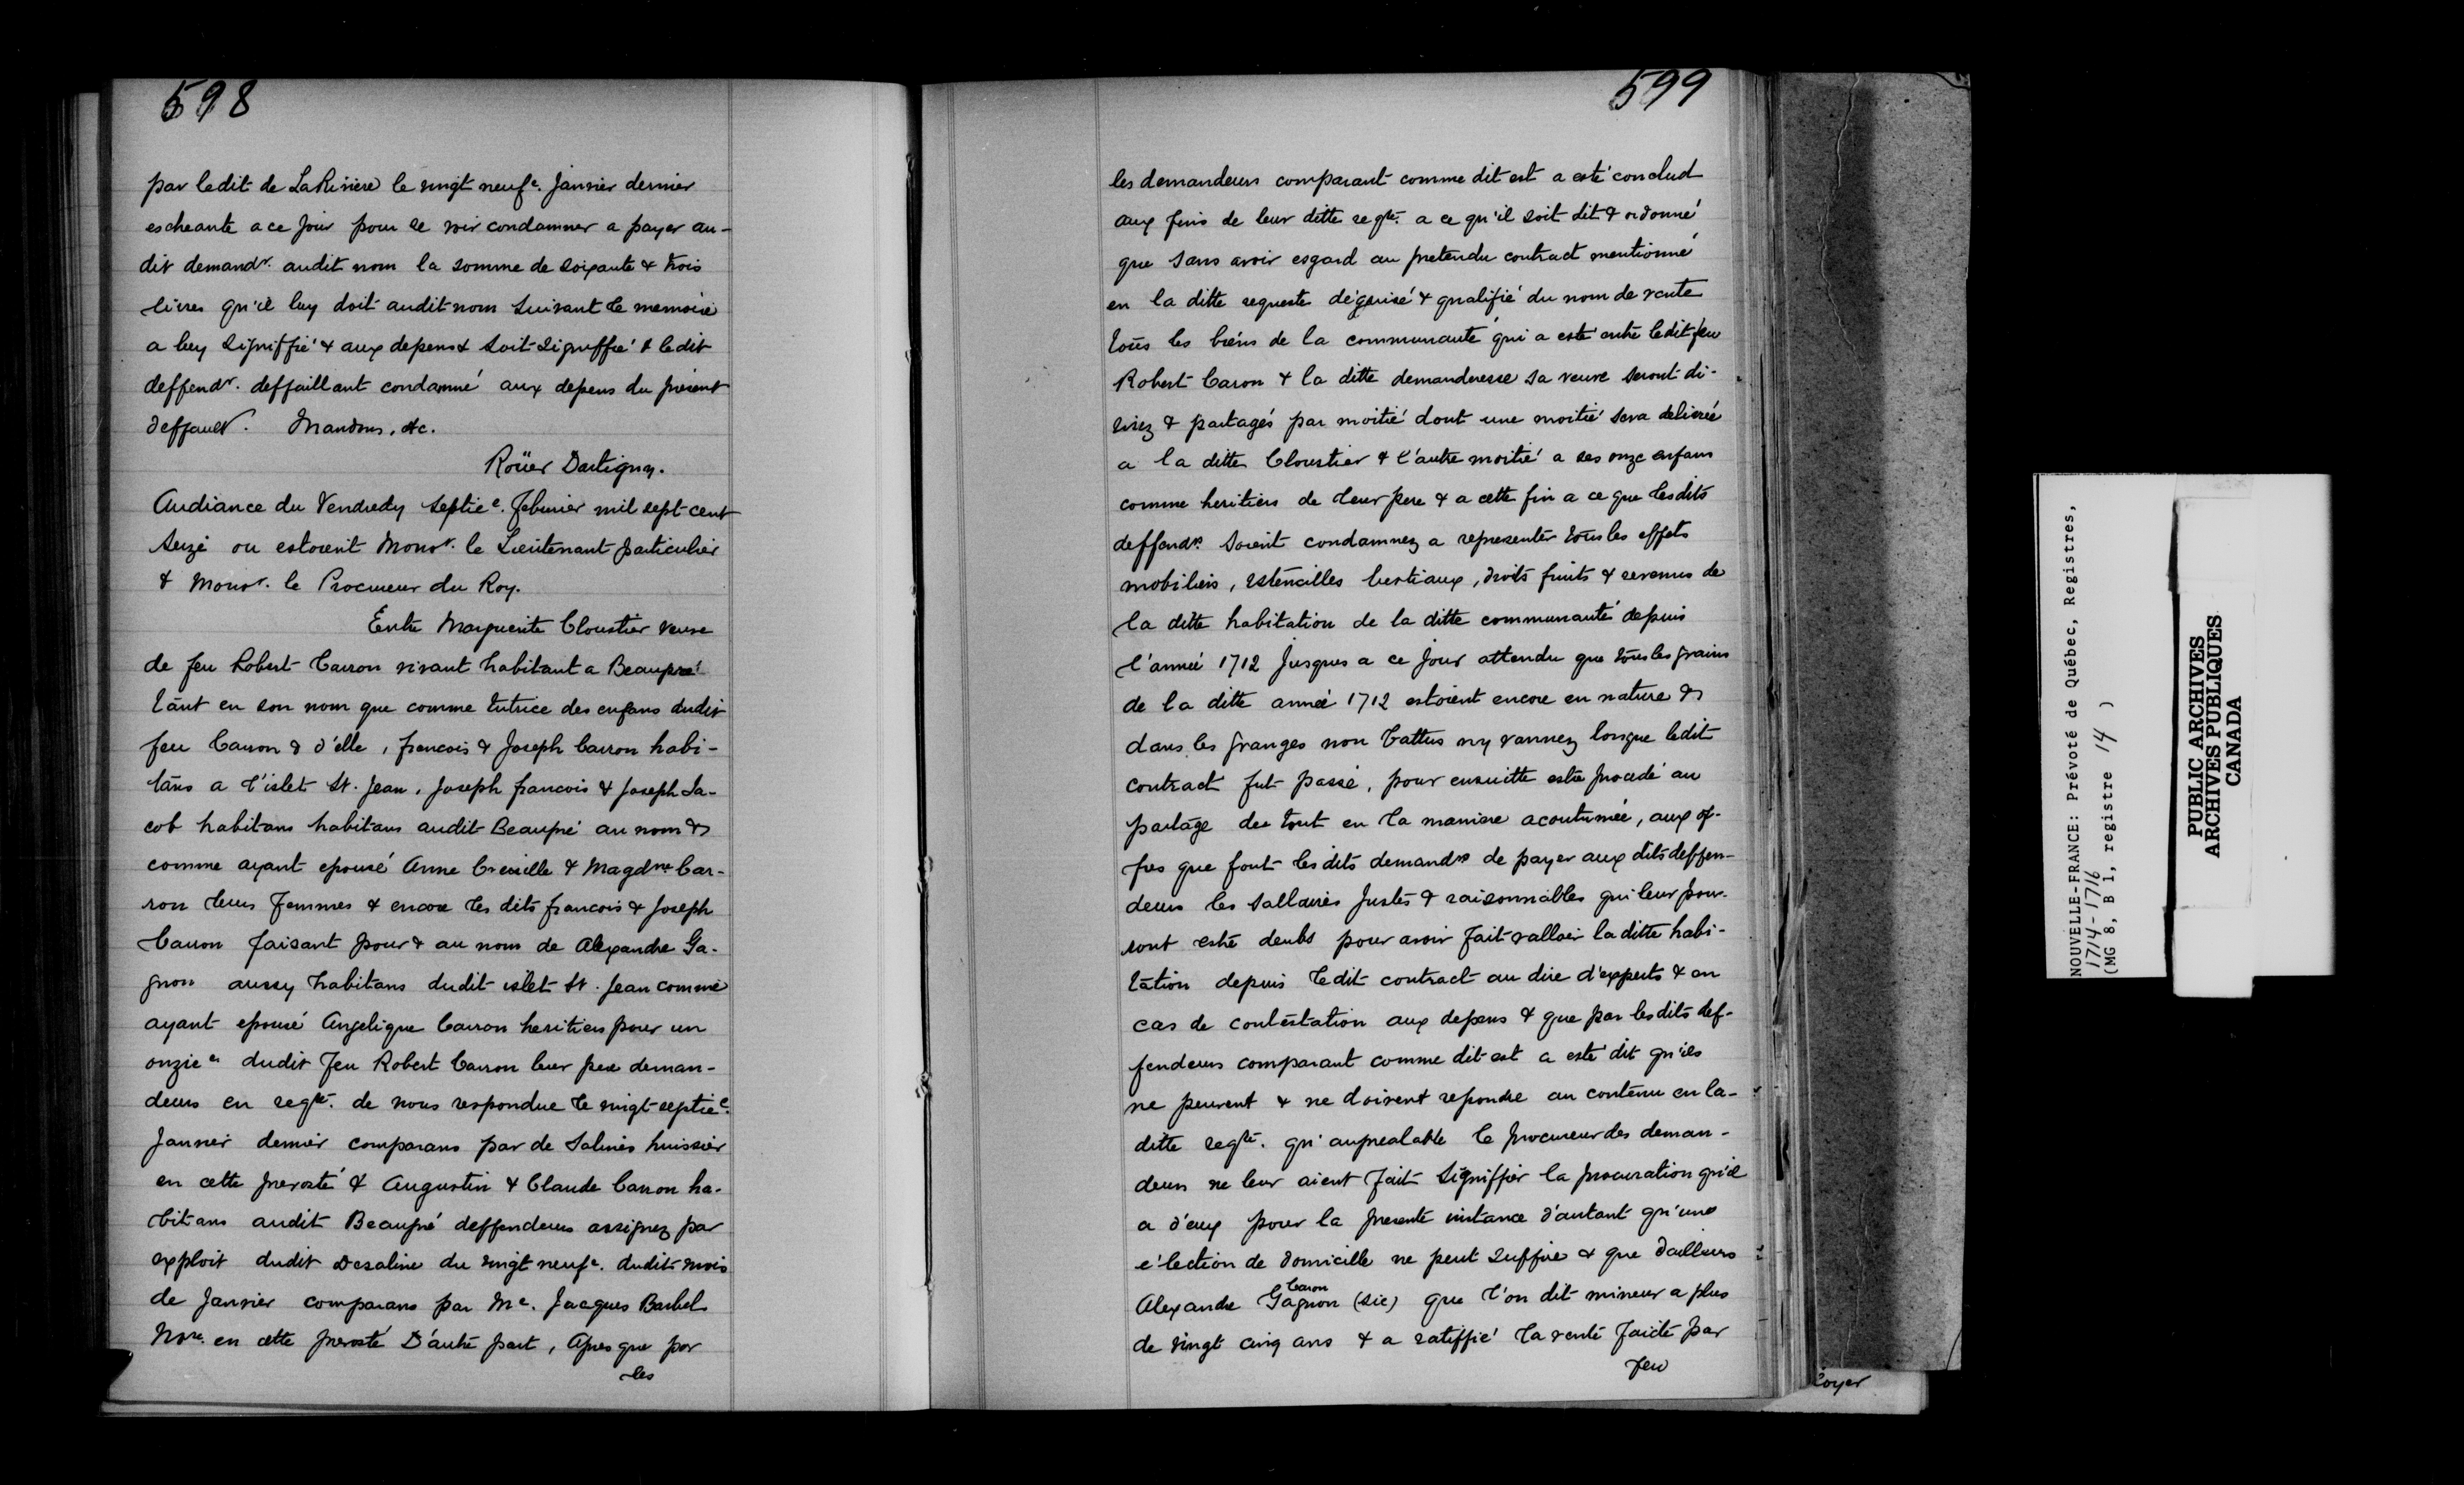 598
par ledit de LaRiviere le vingt neufe. Janvier dernier
escheante a ce jour pour se voir condamner a payer au-
dit demandr. audit nom la somme de soixante & trois
livres qu'il luy doit audit nom suivant le memoire
a luy signiffié & aux depens & soit signiffié & ledit
deffendr. deffaillant condamné aux depens du présent
deffault. Mandons, etc.
Roüer Dartigny.
Audiance du Vendredy septie. febvrier mil sept cent
seize ou estoient Monsr. le Lieutenant particulier
& Monsr. le Procureur du Roy.
Entre Marguerite Cloustier veuve
de feu Robert Carron vivant habitant a Beaupré
tant en son nom que comme tutrice des enfans dudit
feu Carron & d'elle, francois & Joseph Carron habi-
tans a l'islet St. Jean, Joseph francois & Joseph Ja-
cob habitans habitans audit Beaupré au nom &
comme ayant epousé Anne Creuille & Magdne Car-
ron leurs femmes & encore les dits francois & Joseph
Carron faisant pour & au nom de Alexandre Ga-
gnon aussy habitans dudit islet St. Jean comme
ayant epousé Angelique Carron heritiers pour un
onzie dudit feu Robert Carron leur pere deman-
deurs en reqte. de nous respondue le vingt septie.
Janvier dernier comparans par de Salines huissier
en cette prevosté & Augustin & Claude Carron ha-
bitans audit Beaupré deffendeurs assignez par
exploit dudit Desaline du vingt neufe. dudit mois
de Janvier comparans par Me. Jacques Barbel
Nore. en cette prevosté D'autre part, Apres que par
les
599
les demandeurs comparant comme dit est a esté conclud
aux fins de leur ditte reqte. a ce qu'il soit dit & ordonné
que sans avoir esgard au pretendu contract mentionné
en la ditte requeste déguisé & qualifié du nom de vente
tous les biens de la communauté qui a esté entre ledit feu
Robert Caron & la ditte demanderesse sa veuve seront di-
visez & partagés par moitié dont une moitié sera delivrée
a la ditte Cloustier & l'autre moitié a ses onze enfans
comme heritiers de leur pere & a cette fin a ce que lesdits
deffendrs. soient condamnez a representer tous les effets
mobiliers, ustencilles bestiaux, droits fruits & revenus de
la ditte habitation de la ditte communauté depuis
l'année 1712 jusques a ce jour attendu que tous les grains
de la ditte année 1712 estoient encore en nature &
dans les granges non battus ny vannez lorsque ledit
contract fut passé, pour ensuitte estre procedé au
partage du tout en la maniere acoutumée, aux of-
fres que font les dits demandrs de payer aux dits deffen-
deurs les sallaires justes & raisonnables qui leur pour-
ront estre deubs pour avoir fait valloir la ditte habi-
tation depuis ledit contract au dire d'experts & en
cas de contestation aux depens & que par les dits def-
fendeurs comparant comme dit est a esté dit qu'ils
ne peuvent & ne doivent repondre au contenu en la-
ditte reqte. qu'aupréalable le procureur des deman-
deurs ne leur aient fait signiffier la procuration qu'il
a d'eux pour la presente instance d'autant qu'une
election de domicille ne peut suffire & que dailleurs
Caron
Alexandre Gagnon (sic) que l'on dit mineur a plus
de vingt cinq ans & a ratiffié la vente faicte par
feu
loyer
NOUVELLE-FRANCE: Prévoté de Québec, Registres,
1714-1716
(MG 8, B 1, registre 14 )
PUBLIC ARCHIVES
ARCHIVES PUBLIQUES
CANADA